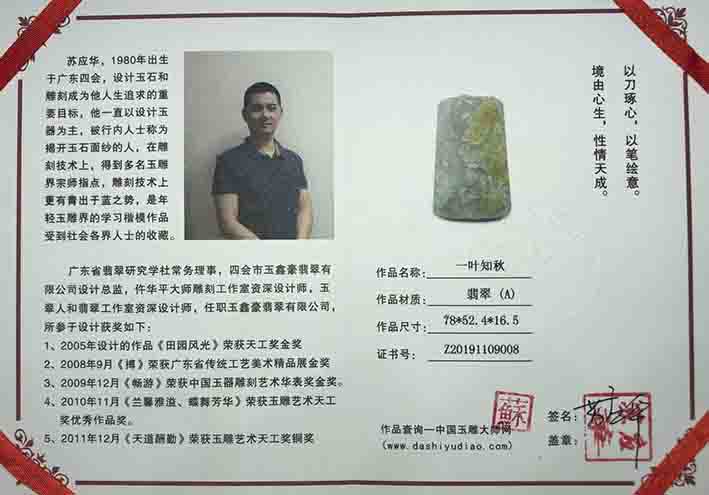 苏应华，1980年出生
于广东四会，设计玉石和
雕刻成为他人生追求的重
要目标，他一直以设计玉
器为主，被行内人士称为
揭开玉石面纱的人，在雕
刻技术上，得到多名玉雕
界宗师指点，雕刻技术上
更有青出于蓝之势，是年
轻玉雕界的学习楷模作品
受到社会各界人士的收藏。
广东省翡翠研究学社常务理事，四会市玉鑫豪翡翠有
限公司设计总监，仵华平大师雕刻工作室资深设计师，玉
翠人和翡翠工作室资深设计师，任职玉鑫豪翡翠有限公司，
所参于设计获奖如下：
1、2005年设计的作品《田园风光》荣获天工奖金奖
2、2008年9月《搏》荣获广东省传统工艺美术精品展金奖
3、2009年12月《畅游》荣获中国玉器雕刻艺术华表奖金奖。
4、2010年11月《兰馨雅溢、蝶舞芳华》荣获玉雕艺术天工
奖优秀作品奖。
5、2011年12月《天道酬勤》荣获玉雕艺术天工奖铜奖
以刀琢心，以笔绘意。
境由心生，性情天成。
作品名称：一叶知秋
作品材质：翡翠（A）
作品尺寸：78*52.4*16.5
证书号：Z20191109008
作品查询—中国玉雕大师网
(www.dashiyudiao.com)
蘇
签名：
盖章：